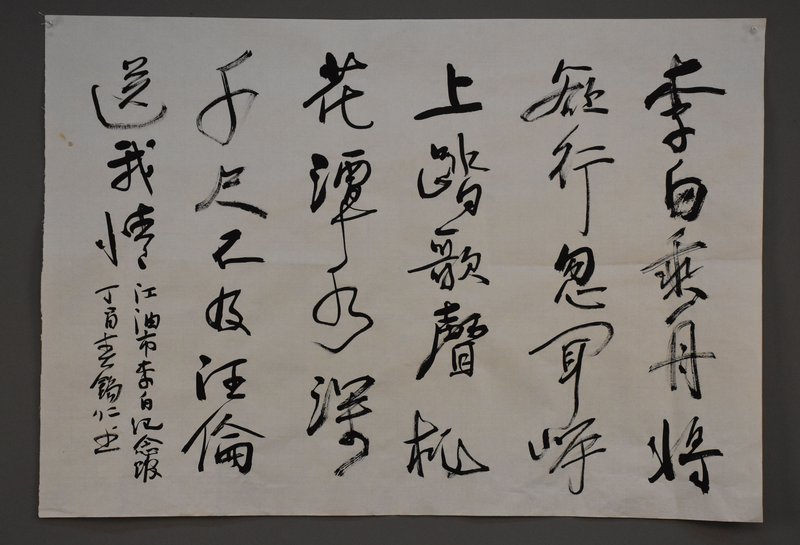 李白乘舟将
欲行忽闻岸
上踏歌聲桃
花潭水深
千尺不及汪倫
送我情
江油市李白纪念馆
丁酉春錫仁书